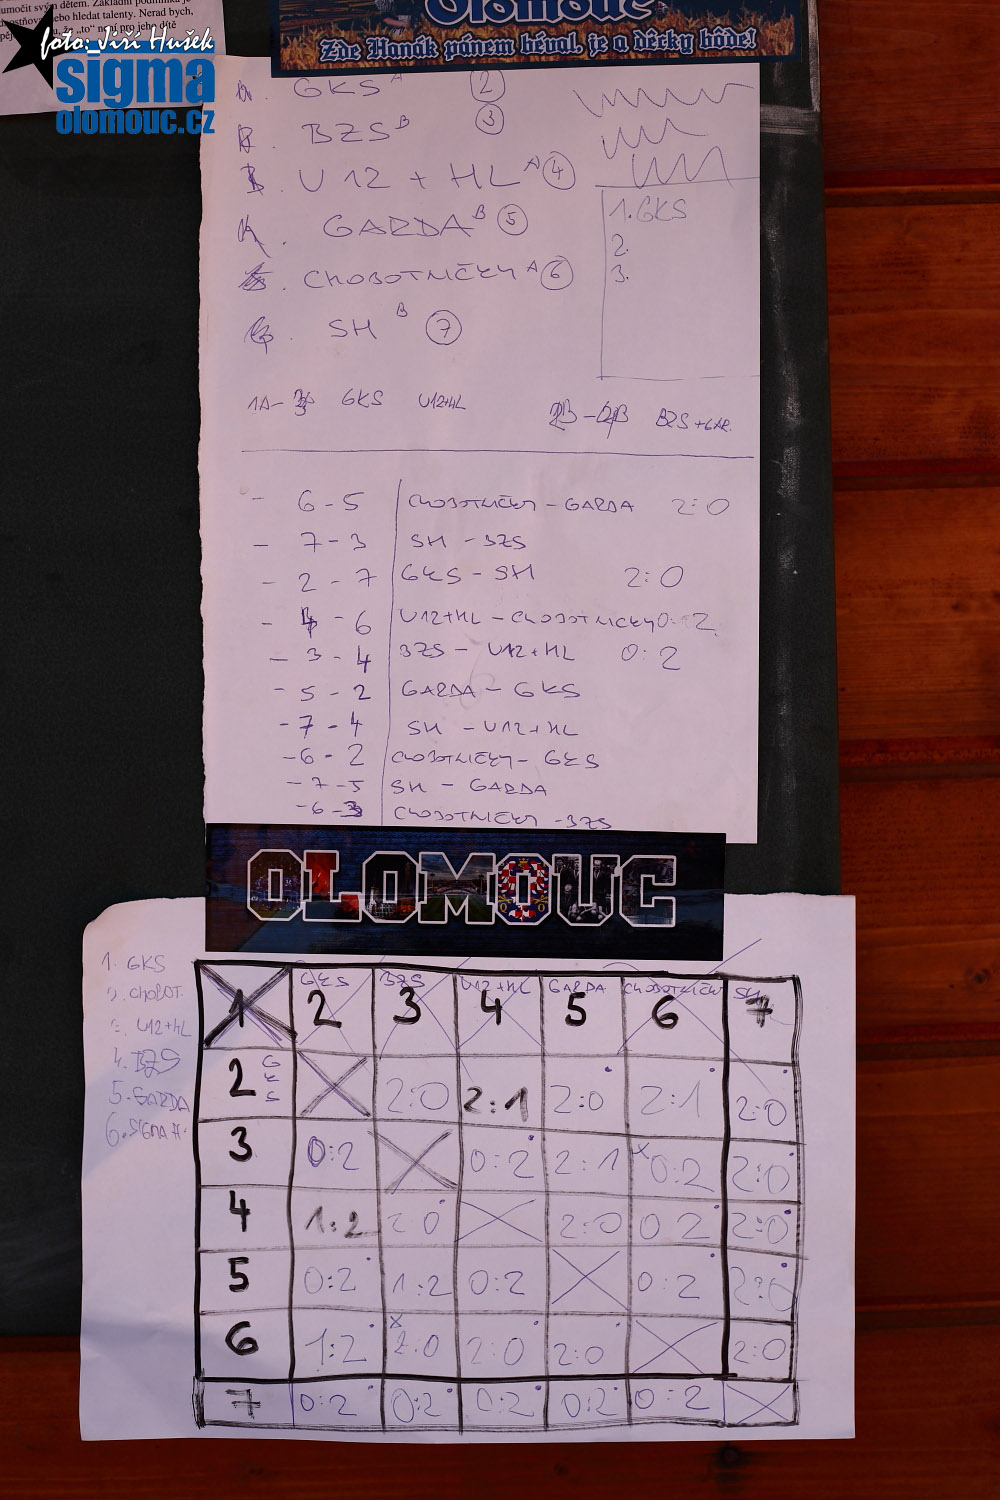 umočit svým dětem. Základní podmínka je
hledat talenty. Nerad bych,
že „to“ není pro jeho dítě
foto: Jiří Hušek
sigma
olomouc.cz
Olomouc
Zde Hanák pánem béval, je a děcky bôde!
GKS A 2
BZS B 3
U12 + HL A 4
GARDA B 5
CHOBOTNIČKY A 6
SH B 7
1. GKS
2.
3.
1A - GKS U12+HL
BZS + GAR.
- 6 - 5 CHOBOTNIČKY - GARDA 2:0
- 7 - 3 SH - BZS
- 2 - 7 GKS - SH 2:0
- 4 - 6 U12+HL - CHOBOTNIČKY 0:2
- 3 - 4 BZS - U12+HL 0:2
- 5 - 2 GARDA - GKS
- 7 - 4 SH - U12+HL
- 6 - 2 CHOBOTNIČKY - GKS
- 7 - 5 SH - GARDA
- 6 - 3 CHOBOTNIČKY - BZS
OLOMOUC
1. GKS
2. CHOBOT.
3. U12+HL
4. BZS
5. GARDA
6. SIGMA H.
GKS BZS U12+HL GARDA CHOBOTNIČKY SH
1 2 3 4 5 6 7
2 GKS 2:0 2:1 2:0 2:1 2:0
3 0:2 0:2 2:1 0:2 2:0
4 1:2 2:0 2:0 0:2 2:0
5 0:2 1:2 0:2 0:2 2:0
6 1:2 2:0 2:0 2:0 2:0
7 0:2 0:2 0:2 0:2 0:2